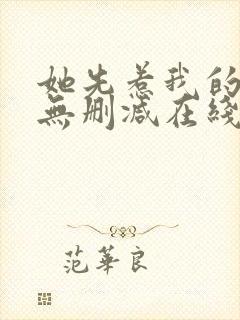 她先惹我的
無刪減在綫
范華良